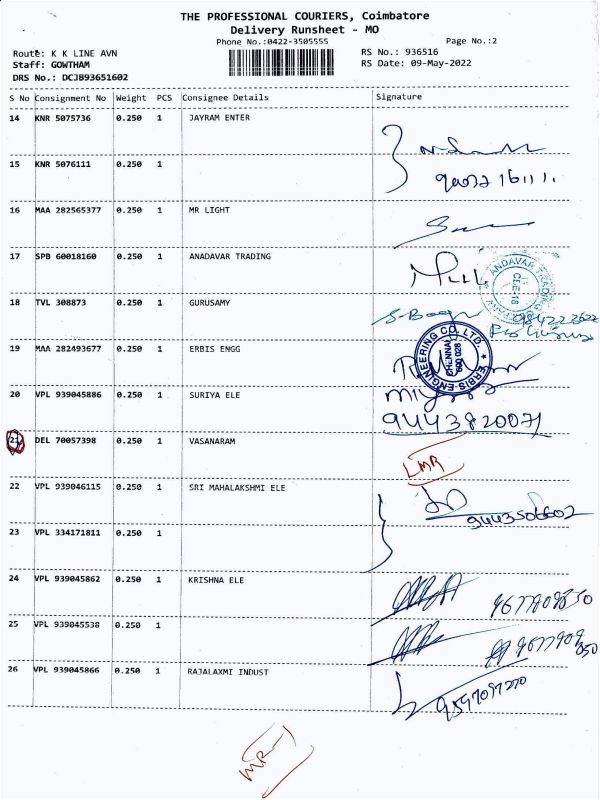 THE PROFESSIONAL COURIERS, Coimbatore
Delivery Runsheet - MO
Phone No.:0422-3505555 Page No.:2
Route: K K LINE AVN RS No.: 936516
Staff: GOWTHAM RS Date: 09-May-2022
DRS No.: DCJB93651602
S No Consignment No Weight PCS Consignee Details Signature
14 KNR 5075736 0.250 1 JAYRAM ENTER
15 KNR 5076111 0.250 1
16 MAA 282565377 0.250 1 MR LIGHT
17 SPB 60018160 0.250 1 ANADAVAR TRADING
ANDAVAR TRADING
18 TVL 308873 0.250 1 GURUSAMY
19 MAA 282493677 0.250 1 ERBIS ENGG
ERBIS-ENGINEERING CO. LTD. CHENNAI 600 028
20 VPL 939045886 0.250 1 SURIYA ELE
9443820071
21 DEL 70057398 0.250 1 VASANARAM
22 VPL 939046115 0.250 1 SRI MAHALAKSHMI ELE
9443506602
23 VPL 334171811 0.250 1
24 VPL 939045862 0.250 1 KRISHNA ELE
25 VPL 939045538 0.250 1
26 VPL 939045866 0.250 1 RAJALAXMI INDUST